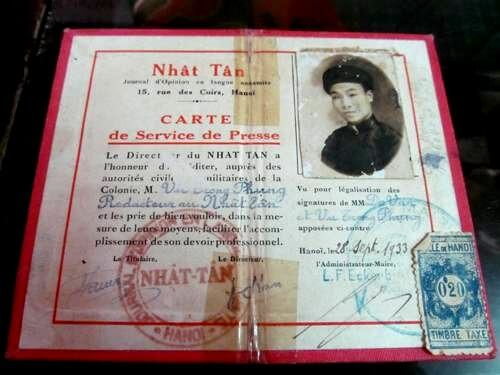 Nhât Tân
Journal d'Opinion en langue annamite
15, rue des Cuirs, Hanoi
CARTE
de Service de Presse
Le Directeur du NHAT TAN a
l'honneur d' diter, auprès des
autorités civil militaires de la
Colonie, M. Vu Trong Phung
Rédacteur au Nhât Tân
et les prie de bien vouloir, dans la me-
sure de leurs moyens, faciliter l'ac-
complissement de son devoir professionnel.
Le Titulaire, Le Directeur,
NHÂT-TÂN
HANOI
Vu pour légalisation des
signatures de MM. Do Van
et Vu Trong Phung
apposées ci-contre
Hanoi, le 28 Sept. 1933
l'Administrateur-Maire,
LLE DE HANOI
0$20
TIMBRE TAXE